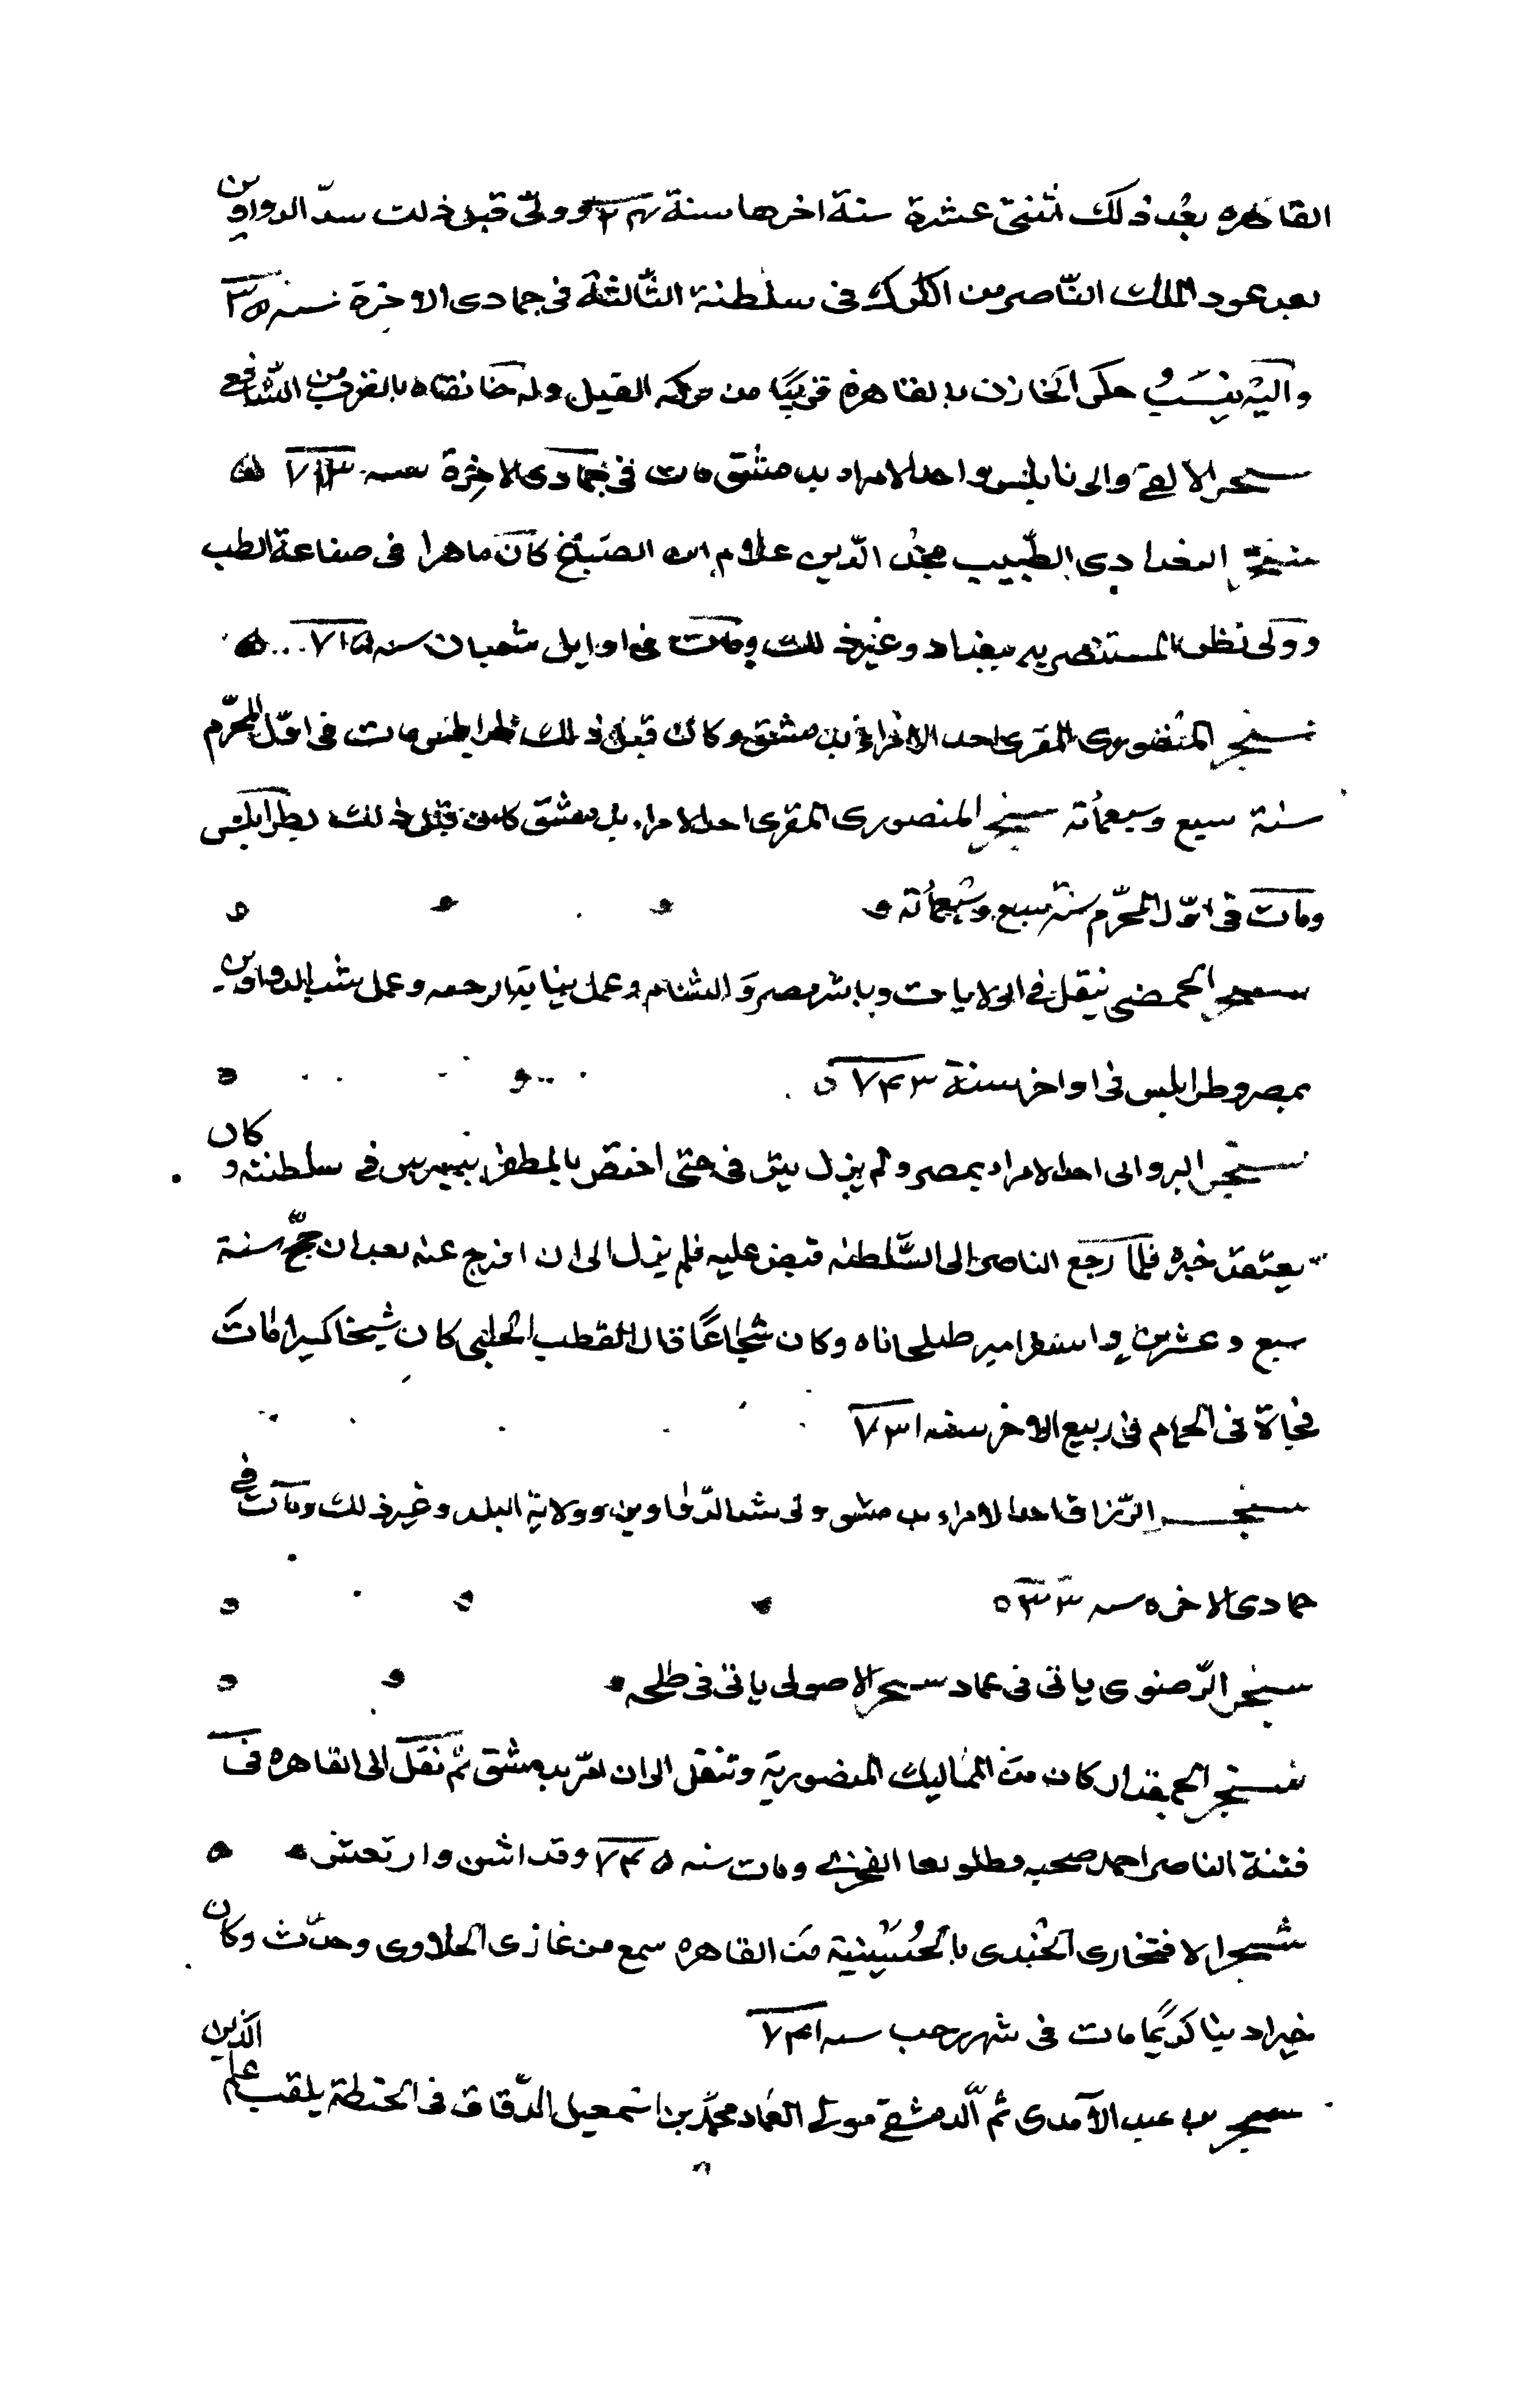 القاهره بعد ذلك اثنتى عشرة سنة اخرها سنة ٧٢٤ وولى قبل ذلك شد الدواوين
بعد عود الملك الناصر من الكرك فى سلطنة الثالثة فى جمادى الاخرة سنه ٧٣٥
واليه ينسب حكر الخازن بالقاهرة قريبا من بركه الفيل وله خانقاه بالقرب من الشافعى
سنجر الالفى والى نابلس واحد الامراء بدمشق مات فى جمادى الاخرة سنه ٧١٣ ه
سنجر البغدادى الطبيب مجد الدين غلام ابن الصباغ كان ماهرا فى صناعة الطب
وولى نظر المستنصريه ببغداد وغير ذلك ومات فى اوايل شعبان سنه ٧١٥ ه
سنجر المنصورى المقرى احد الامراء بدمشق وكان قبل ذلك بطرابلس مات فى اول المحرم
سنة سبع وسبعمأته سنجر المنصورى المقرى احد الامراء بدمشق كان قبل ذلك بطرابلس
ومات فى اول المحرم سنة سبع وسبعمأته ه
سنجر الحمصى تنقل فى الولايات وباشر مصر والشام وعمل نيابة الرحبه وعمل شد الدواوين
بمصر وطرابلس فى اواخر سنة ٧٤٣ ه
سنجر البروانى احد الامراء بمصر ولم يزل يترقى حتى اختص بالمظفر بيبرس فى سلطنته وكان
يعتقد خيره فلما رجع الناصر الى السلطنه قبض عليه فلم يزل الى ان افرج عنه بعد ان حج سنة
سبع وعشرين واستقر امير طبلخاناه وكان شجاعا قال القطب الحلبى كان شيخا كبيرا مات
فجاة فى الحمام فى ربيع الاخر سنه ٧٣١
سنجر الزراق احد الامراء بدمشق ولى شد الدواوين وولاية البلد وغير ذلك ومات فى
جمادى الاخره سنه ٧٣٣ ه
سنجر الرضوى ياتى فى عماد سنجر الاصولى ياتى فى طلحه
سنجر الجمقدار كان من المماليك المنصورية وتنقل الى ان امر بدمشق ثم نقل الى القاهره فى
فتنة الناصر احمد صحبه قطلوبغا الفخرى ومات سنه ٧٤٥ وقد اسن وارتعش ه
سنجر الافتخارى الجندى بالحسينية من القاهره سمع من غازى الحلاوى وحدث وكان
خيرا دينا كريما مات فى شهر رجب سنه ٧٤١
سنجر بن عبد الآمدى ثم الدمشقى مولى العماد محمد بن اسمعيل الدقاق فى الحنطة يلقب علم الدين